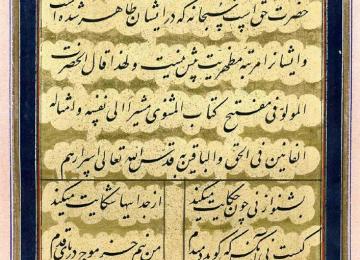 حضرت حق است سبحانه که در ایشان ظاهر شده است
و ایشانرا مرتبه مظهریت بیش نیست و لهذا قال الحضرت
المولوی فی مفتتح کتاب المثنوی مشیرا الی نفسه و امثاله
الفانین فی الحق و الباقین به قدس الله تعالی اسرارهم
بشنو از نی چون حکایت میکند از جداییها شکایت میکند
کیست نی آن کس که گوید دمبدم من نیم جز موج دریای قدم